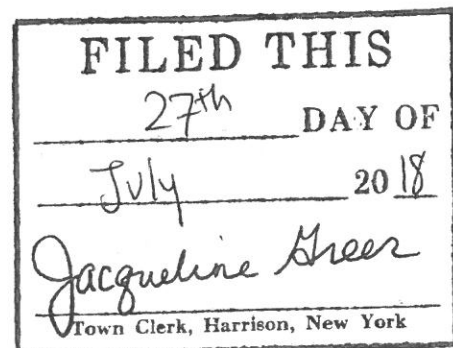 FILED THIS
27th DAY OF
July 2018
Jacqueline Greer
Town Clerk, Harrison, New York